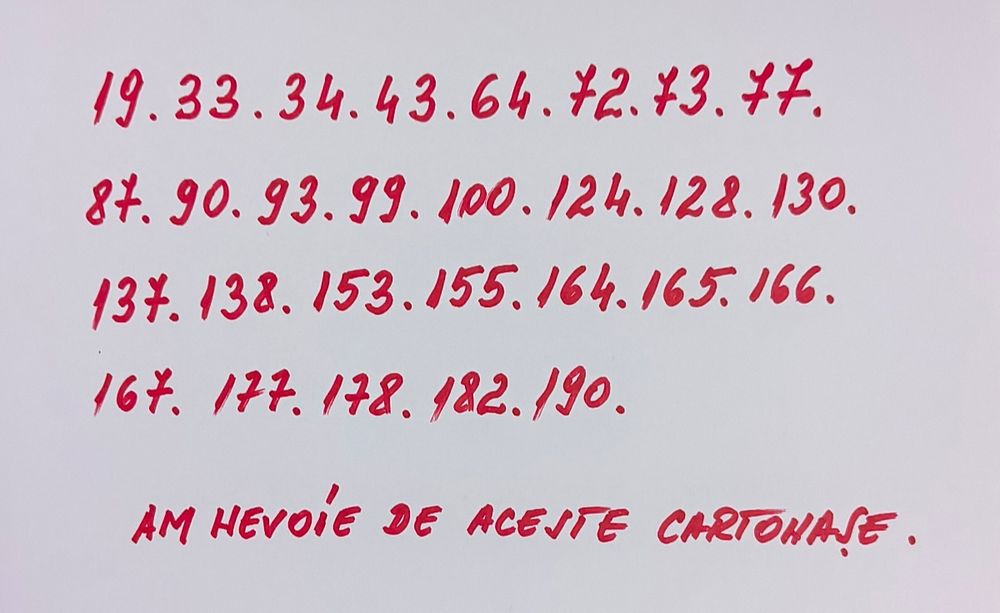 19. 33. 34. 43. 64. 72. 73. 77.
87. 90. 93. 99. 100. 124. 128. 130.
137. 138. 153. 155. 164. 165. 166.
167. 177. 178. 182. 190.
AM NEVOIE DE ACESTE CARTONAȘE.